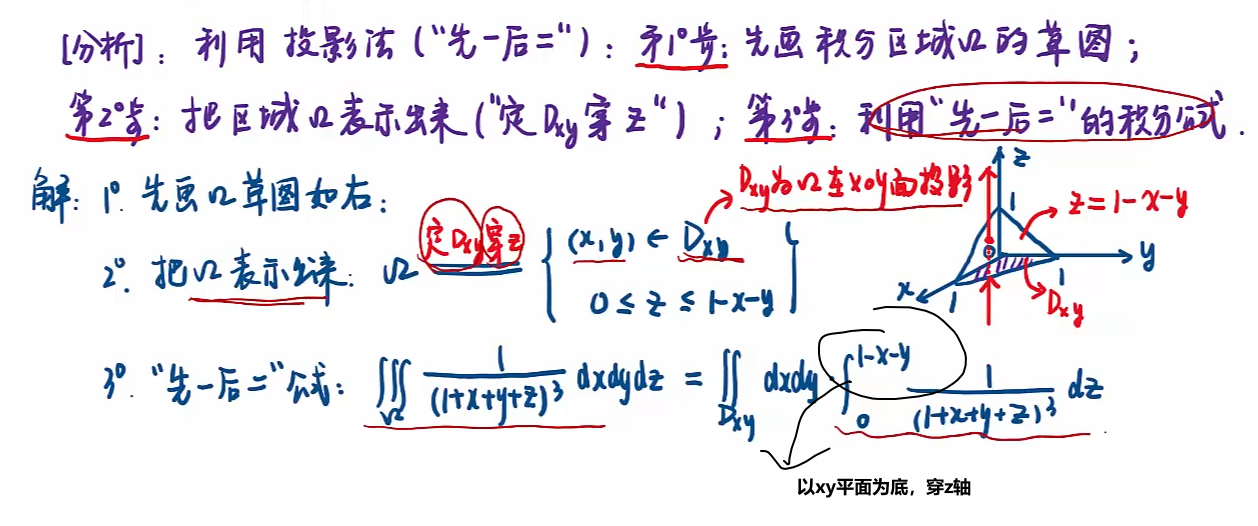 [分析]：利用投影法("先一后二")：第1°步：先画积分区域Ω的草图；
第2°步：把区域Ω表示出来("定Dxy穿z")；第3°步：利用"先一后二"的积分公式.
解：1°. 先画Ω草图如右：
Dxy为Ω在xoy面投影
2°. 把Ω表示出来：Ω 定Dxy穿z { (x,y) ∈ Dxy
0 ≤ z ≤ 1-x-y }
z
1
z=1-x-y
0
y
1
x
1
Dxy
3°. "先一后二"公式：∭Ω 1/(1+x+y+z)³ dxdydz = ∬Dxy dxdy · ∫₀^(1-x-y) 1/(1+x+y+z)³ dz
以xy平面为底，穿z轴